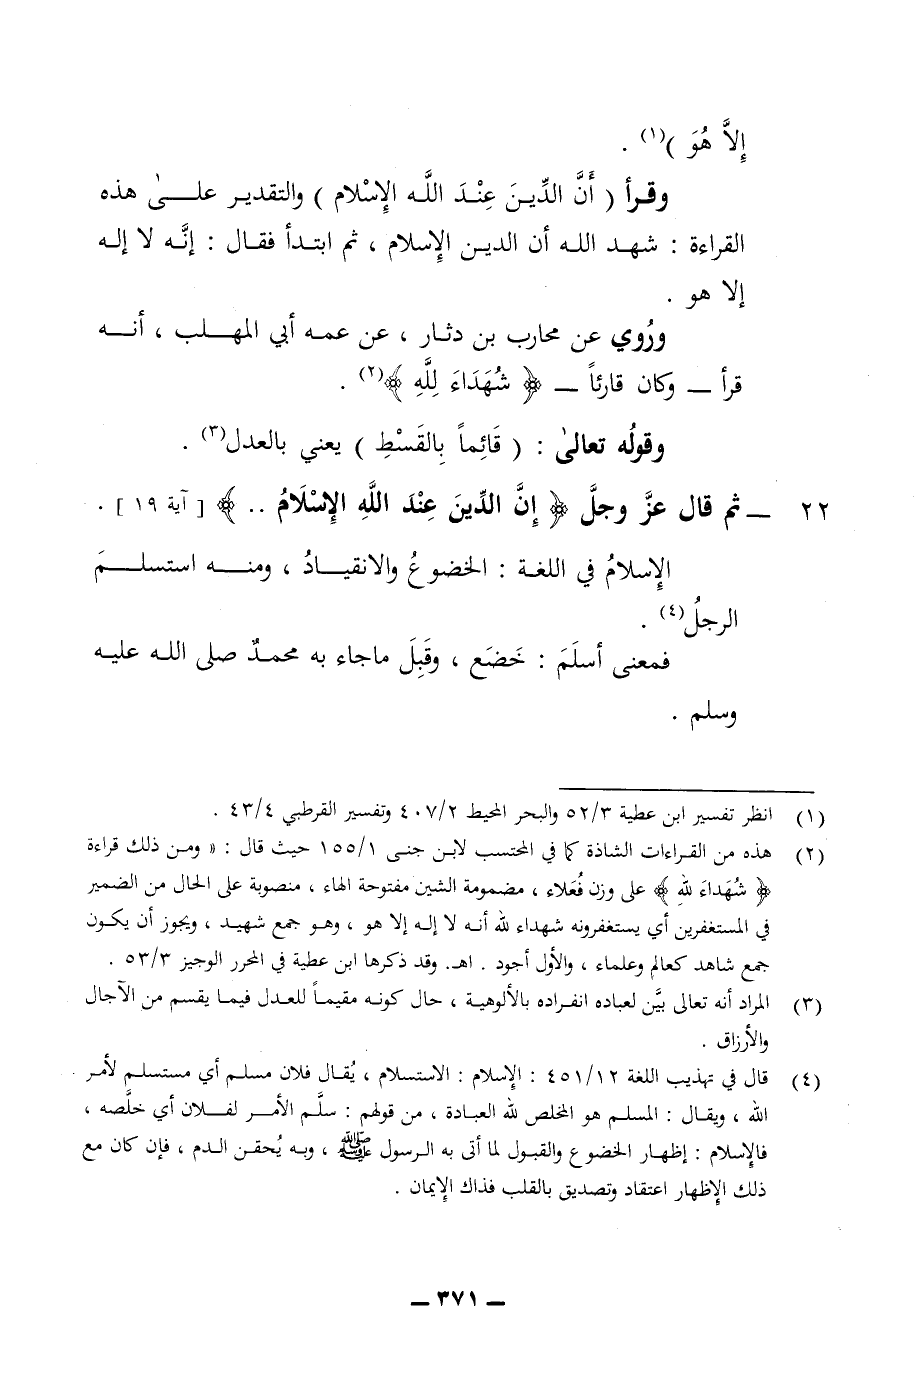 إِلاَّ هُوَ )(١) .
وقرأ ( أَنَّ الدِّينَ عِنْدَ اللَّه الإِسْلام ) والتقدير علىٰ هذه
القراءة : شهد الله أن الدين الإِسلام ، ثم ابتدأ فقال : إنَّه لا إله
إلا هو .
ورُوي عن محارب بن دثار ، عن عمه أبي المهلب ، أنه
قرأ ــ وكان قارئاً ــ ﴿ شُهَدَاءَ لِلَّهِ ﴾(٢) .
وقولُه تعالىٰ : ( قَائِماً بِالقَسْطِ ) يعني بالعدل(٣) .
٢٢ ــ ثم قال عزَّ وجلَّ ﴿ إِنَّ الدِّينَ عِنْدَ اللَّهِ الإِسْلَامُ .. ﴾ [ آية ١٩ ] .
الإِسلامُ في اللغة : الخضوعُ والانقيادُ ، ومنه استسلمَ
الرجلُ(٤) .
فمعنى أسلَمَ : خَضَع ، وقَبِلَ ماجاء به محمدٌ صلى الله عليه
وسلم .
(١) انظر تفسير ابن عطية ٥٢/٣ والبحر المحيط ٤٠٧/٢ وتفسير القرطبي ٤٣/٤ .
(٢) هذه من القراءات الشاذة كما في المحتسب لابن جنى ١٥٥/١ حيث قال : « ومن ذلك قراءة
﴿ شُهَداءَ لله ﴾ على وزن فُعَلاء ، مضمومة الشين مفتوحة الهاء ، منصوبة على الحال من الضمير
في المستغفرين أي يستغفرونه شهداء لله أنه لا إله إلا هو ، وهو جمع شهيد ، ويجوز أن يكون
جمع شاهد كعالم وعلماء ، والأول أجود . اهـ. وقد ذكرها ابن عطية في المحرر الوجيز ٥٣/٣ .
(٣) المراد أنه تعالى بيَّن لعباده انفراده بالألوهية ، حال كونه مقيماً للعدل فيما يقسم من الآجال
والأرزاق .
(٤) قال في تهذيب اللغة ٤٥١/١٢ : الإِسلام : الاستسلام ، يُقال فلان مسلم أي مستسلم لأمر
الله ، ويقال : المسلم هو المخلص لله العبادة ، من قولهم : سلَّم الأمر لفلان أي خلَّصه ،
فالإِسلام : إظهار الخضوع والقبول لما أتى به الرسول ﷺ ، وبه يُحقن الدم ، فإن كان مع
ذلك الإِظهار اعتقاد وتصديق بالقلب فذاك الإِيمان .
ــ ٣٧١ ــ